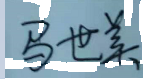 马世美